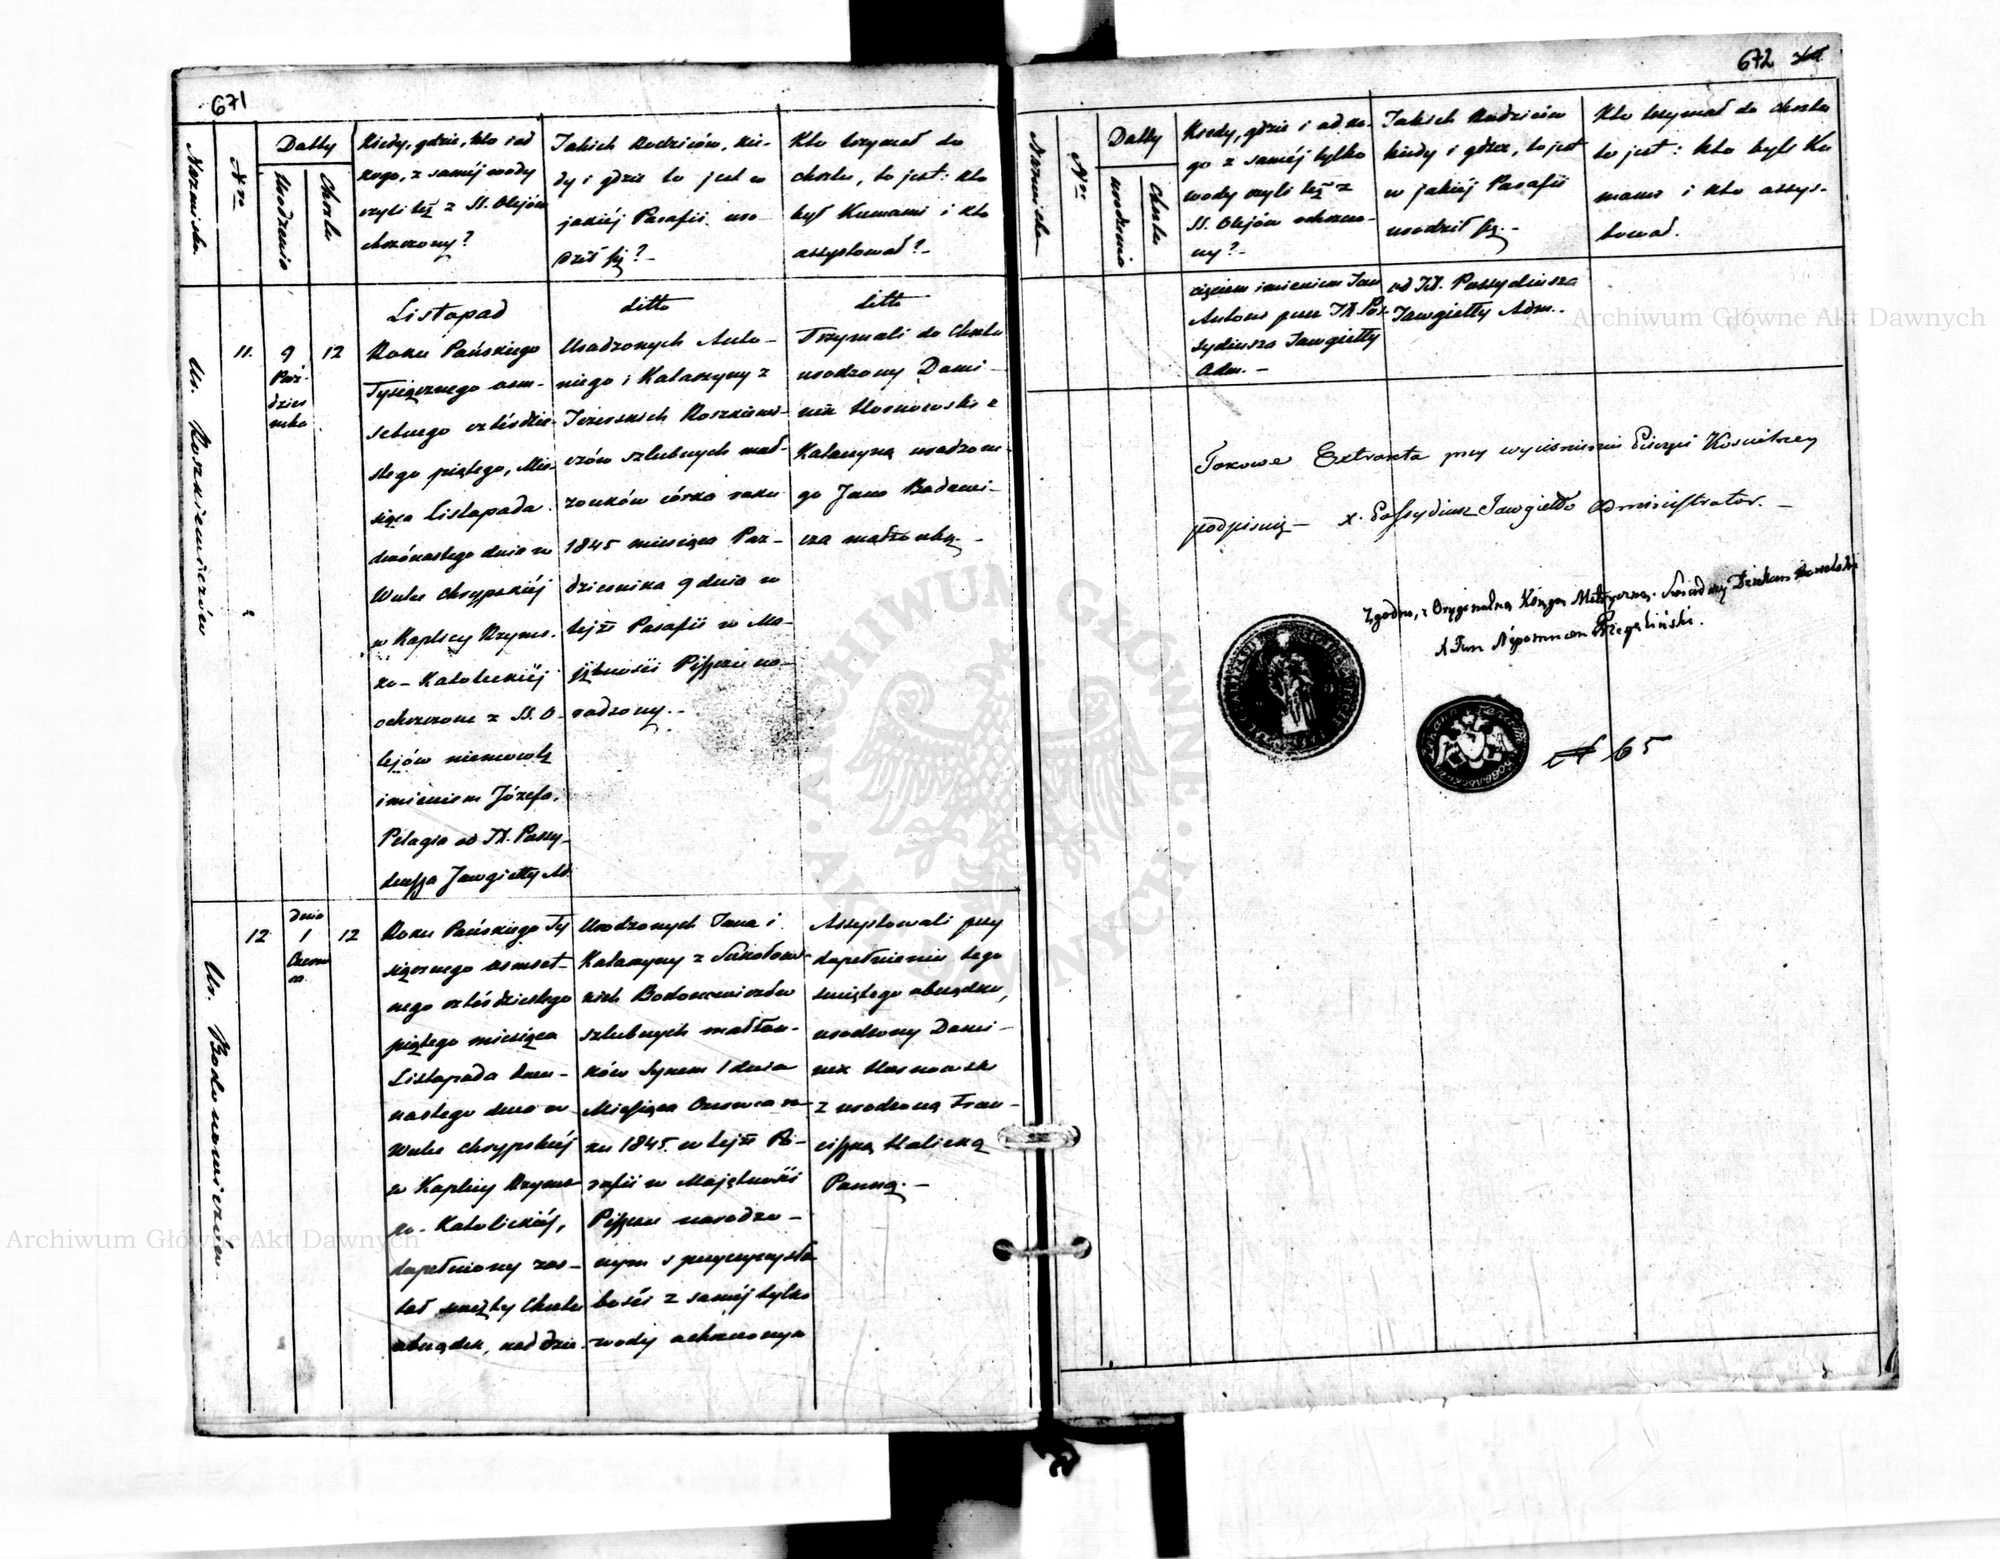 671
Nazwiska
Nro
Datty
Urodzenia
Chrztu
Kiedy, gdzie, kto i od
kogo, z saméj wody
czyli téż z SS. Olejów
chrzczony?
Jakich Rodziców, kie-
dy i gdzie to jest w
jakiéj Parafii uro-
dził się?-
Kto trzymał do
chrztu, to jest: kto
był Kumami i kto
assystował?-
Listopad
ditto
ditto
Ur. Roszkiewiczów
11.
9
Paź-
dzier
nika
12
Roku Pańskiego
Tysiącznego ośm-
setnego czterdzie-
stego piątego, Mie-
siąca Listopada
dwónastego dnia w
Wulce chrypskiéj
w Kaplicy Rzyms-
ko-Katolickiéj
ochrzczone z SS. O-
lejów niemowlę
imieniem Józefa,
Pelagia od JX. Possy-
diusza Jawgiełły Ad.
Urodzonych Anto-
niego i Katarzyny z
Jezierskich Roszkiewi-
czów szlubnych mał-
żonków córka roku
1845 miesiąca Paź-
dziernika 9 dnia w
tejże Parafii w Ma-
jętności Piszcza na-
rodzony.-
Trzymali do Chrztu
urodzony Domi-
nik Uosnowski z
Katarzyną urodzone-
go Jana Bodowi-
cza małżonką.-
Ur. Bodonowiczów
12
dnia
1
Czerw
ca
12
Roku Pańskiego Ty
siącznego ośmset-
nego czterdziestego
piątego miesiąca
Listopada dwu-
nastego dnia w
Wulce chrypskiéj
w Kaplicy Rzyms
ko-Katolickiéj,
dopełniony zos-
tał święty Chrztu
obrządek, nad dzie-
Urodzonych Jana i
Katarzyny z Sokołows-
kich Bodonowiczów
szlubnych małżon-
ków Synem 1 dnia
Miesiąca Czerwca ro-
ku 1845. w tejże Pa-
rafii w Majętności
Piszcza narodzo-
nym z przyczyny sła
bości z saméj tylko
wody ochrzczonym
Assystowali przy
dopełnieniu tego
świętego obrządku,
urodzony Domi-
nik Uosnowski
z urodzoną Fran-
ciszką Halicką
Panną.-
672
Nazwiska
Nro
Datty
urodzenia
Chrztu
Kiedy, gdzie i od ko-
go z saméj tylko
wody czyli téż z
SS. Olejów ochrzczo-
ny?-
Jakich Rodziców
kiedy i gdzie, to jest
w jakiéj Parafii
urodził się.-
Kto trzymał do chrztu
to jest: kto byli Ku
mami i kto assys-
tował.
cięciem imieniem Jan
Antoni przez JX. Pos-
sydiusza Jawgiełły
Adm.-
od JX. Possydiusza
Jawgiełły Adm.-
Takowe Extrakta przy wyciśnieniu Pieczęci Kościelnéj
podpisuię- X. Possydiusz Jawgiełło Administrator.-
Zgodno, z Oryginalną Xięgą Metryczną. Świadczy Dziekan Kowelski
X Jan Nepomucen
№ 65
Archiwum Główne Akt Dawnych
Archiwum Główne Akt Dawnych
ARCHIWUM GŁÓWNE AKT DAWNYCH